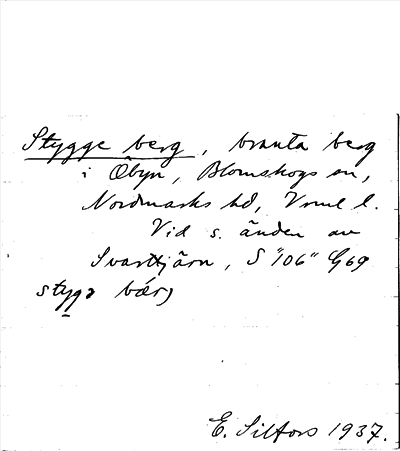 Stygge berg, branta berg
i Öbyn, Blomskogs sn,
Nordmarks hd, Vrml l.
Vid s. änden av
Svarttjärn, S "106" G69
stygə bærj
E. Silfors 1937.